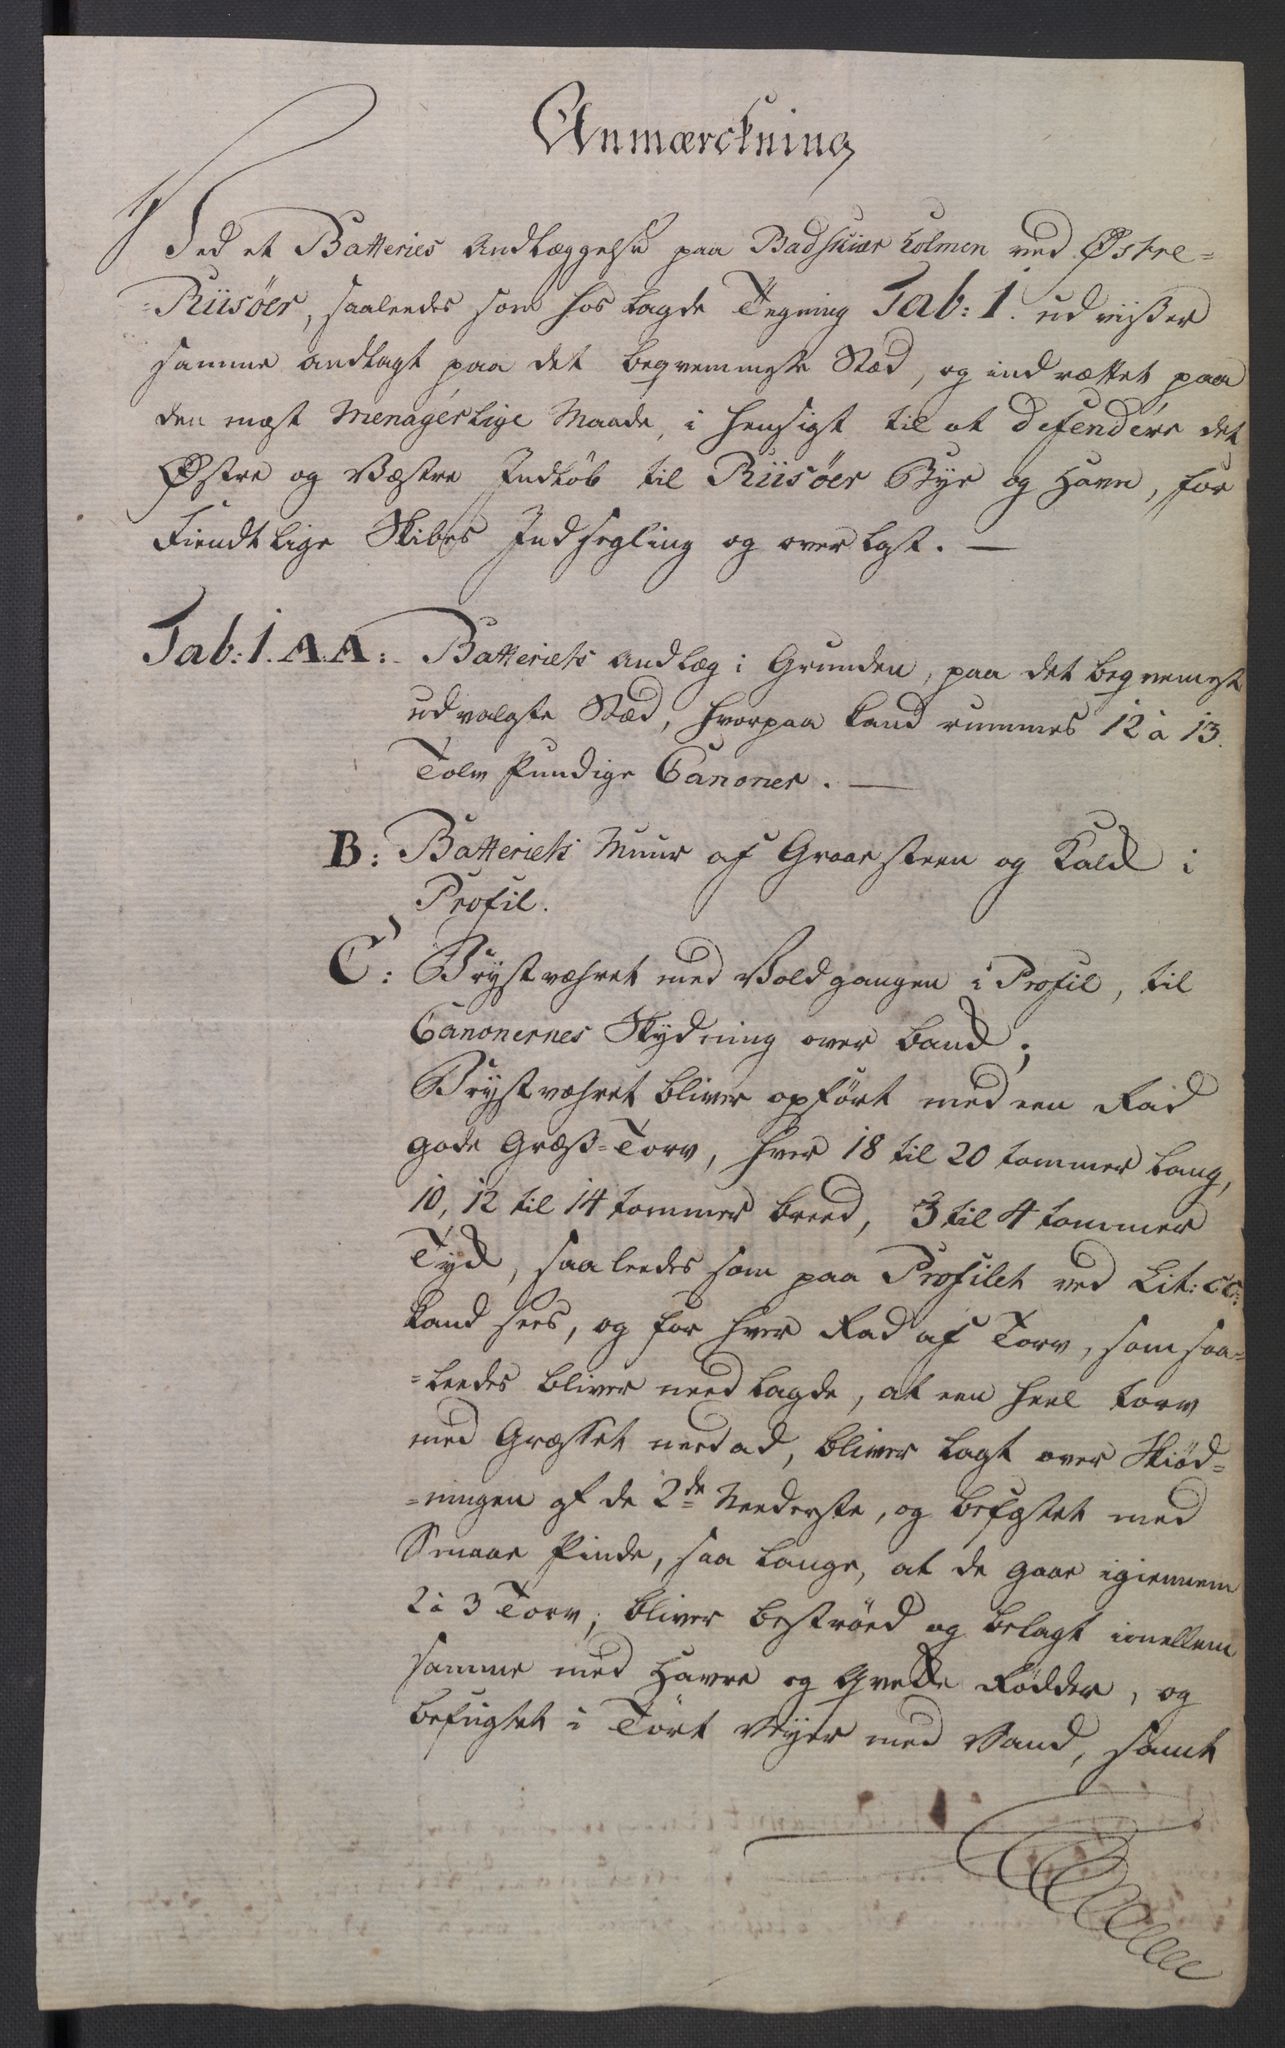 Anmærckning
Ved et Batteries Andlæggelse paa Badskiær holmen ved Østre=
=Riisøer, saaleedes som hos lagde Tegning Tab: 1. udviißer
samme andlagt paa det beqvemmeste Stæd, og indrættet paa
den mest Menagérlige Maade, i hensigt til at defendére det
Østre og Væstre Indløb til Riisøer Bye og Havn, for
Fiendtlige Skibes Indsegling og overlast. —
Tab: 1. A.A: Batteriets Andlæg i Grunden, paa det beqvemest
udvalgte Stæd, hvorpaa kand rummes 12 à 13.
Tolv Pundige Canoner. —
B: Batteriets Muur af Graaesteen og Kald i
Profil.
C: Brystvæhret med Voldgangen i Profil, til
Canonernes Skydning over band;
Brystvæhret bliver opført med een Rad
gode Græß=Torv, hver 18 til 20 tommer lang,
10, 12 til 14 tommer breed, 3 til 4 tommer
Tyk, saaleedes som paa Profilet ved Lit: CC:
kand sees, og for hver Rad af Torv, som saa=
=leedes bliver needlagde, at een heel torv
med Græsset nedad, bliver lagt over Skiød=
=ningen af de 2de Neederste, og befæstet med
Smaae Pinde, saa lange, at de gaar igiennem
2 à 3 Torv; bliver bestrøed og belagt imellem
samme med Havre og Qvekke Rødder, og
befugtet i Tørt Veyer med Vand, samt